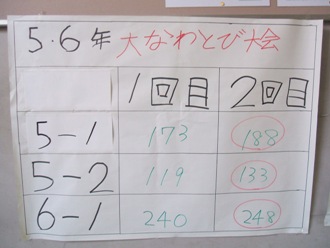 5・6年 大なわとび大会
1回目 2回目
5-1 173 188
5-2 119 133
6-1 240 248